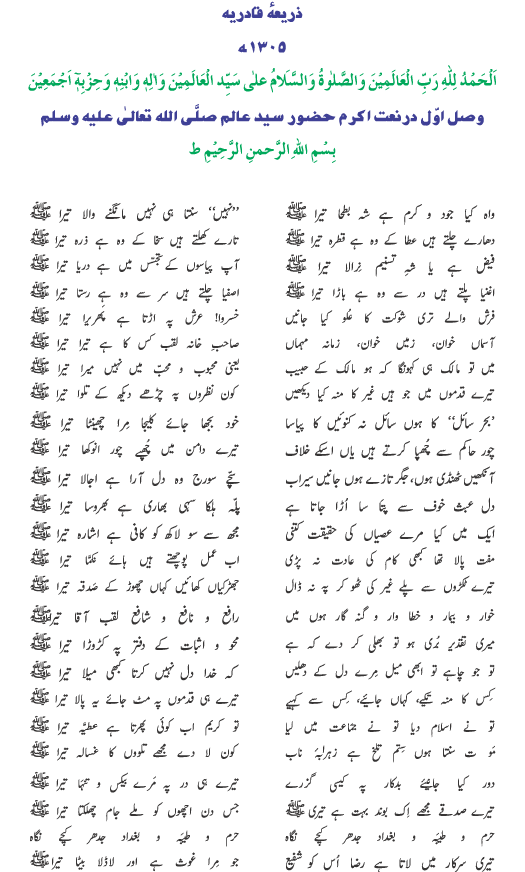 ذریعۂ قادریہ
۱۳۰۵ھ
اَلْحَمْدُ لِلّٰهِ رَبِّ الْعَالَمِیْنَ وَالصَّلٰوةُ وَالسَّلَامُ عَلٰی سَیِّدِ الْعَالَمِیْنَ وَاٰلِهٖ وَابْنِهٖ وَحِزْبِهٖٓ اَجْمَعِیْنَ
وصل اوّل در نعت اکرم حضور سید عالم صلَّی الله تعالیٰ علیه وسلم
بِسْمِ اللهِ الرَّحمنِ الرَّحِیْمِ ط
واہ کیا جود و کرم ہے شہِ بطحا تیرا ﷺ ”نہیں“ سنتا ہی نہیں مانگنے والا تیرا ﷺ
دھارے چلتے ہیں عطا کے وہ ہے قطرہ تیرا ﷺ تارے کھلتے ہیں سخا کے وہ ہے ذرہ تیرا ﷺ
فیض ہے یا شہِ تسنیم نرالا تیرا ﷺ آپ پیاسوں کے تجسّس میں ہے دریا تیرا ﷺ
اغنیا پلتے ہیں در سے وہ ہے باڑا تیرا ﷺ اصفیا چلتے ہیں سر سے وہ ہے رستا تیرا ﷺ
فرش والے تری شوکت کا عُلو کیا جانیں خسروا! عرش پہ اڑتا ہے پھریرا تیرا ﷺ
آسماں خوان، زمیں خوان، زمانہ مہماں صاحبِ خانہ لقب کس کا ہے تیرا تیرا ﷺ
میں تو مالک ہی کہونگا کہ ہو مالک کے حبیب یعنی محبوب و محب میں نہیں میرا تیرا ﷺ
تیرے قدموں میں جو ہیں غیر کا منہ کیا دیکھیں کون نظروں پہ چڑھے دیکھ کے تلوا تیرا ﷺ
’بحر سائل‘‘ کا ہوں سائل نہ کنوئیں کا پیاسا خود بجھا جائے کلیجا مِرا چھینٹا تیرا ﷺ
چور حاکم سے چُھپا کرتے ہیں یاں اسکے خلاف تیرے دامن میں چُھپے چور انوکھا تیرا ﷺ
آنکھیں ٹھنڈی ہوں، جگر تازے ہوں جانیں سیراب سچّے سورج وہ دل آرا ہے اجالا تیرا ﷺ
دل عبث خوف سے پتا سا اُڑا جاتا ہے پلّہ ہلکا سہی بھاری ہے بھروسا تیرا ﷺ
ایک میں کیا مرے عصیاں کی حقیقت کتنی مجھ سے سو لاکھ کو کافی ہے اشارہ تیرا ﷺ
مفت پالا تھا کبھی کام کی عادت نہ پڑی اب عمل پوچھتے ہیں ہائے نکمّا تیرا ﷺ
تیرے ٹکڑوں سے پلے غیر کی ٹھوکر پہ نہ ڈال جھڑکیاں کھائیں کہاں چھوڑ کے صَدقہ تیرا ﷺ
خوار و بیمار و خطا وار و گنہ گار ہوں میں رافع و نافع و شافع لقب آقا تیرا ﷺ
میری تقدیر بُری ہو تو بھلی کر دے کہ ہے محو و اثبات کے دفتر پہ کڑوڑا تیرا ﷺ
تو جو چاہے تو ابھی میل مِرے دل کے دھلیں کہ خدا دل نہیں کرتا کبھی میلا تیرا ﷺ
کِس کا منہ تکیے، کہاں جائیے، کِس سے کہیے تیرے ہی قدموں پہ مٹ جائے یہ پالا تیرا ﷺ
تو نے اسلام دیا تو نے جماعت میں لیا تو کریم اب کوئی پھرتا ہے عطیّہ تیرا ﷺ
مو ت سنتا ہوں سِتم تلخ ہے زہرابۂ ناب کون لا دے مجھے تلووں کا غسالہ تیرا ﷺ
دور کیا جانیئے بدکار پہ کیسی گزرے تیرے ہی در پہ مَرے بیکس و تنہا تیرا ﷺ
تیرے صدقے مجھے اِک بوند بہت ہے تیری ﷺ جس دن اچھوں کو ملے جام چھلکتا تیرا ﷺ
حرم و طیبَہ و بغداد جدھر کیجے نگاہ حرم و طیبَہ و بغداد جدھر کیجے نگاہ
تیری سرکار میں لاتا ہے رضاؔ اُس کو شفیع جو مِرا غوث ہے اور لاڈلا بیٹا تیرا ﷺ